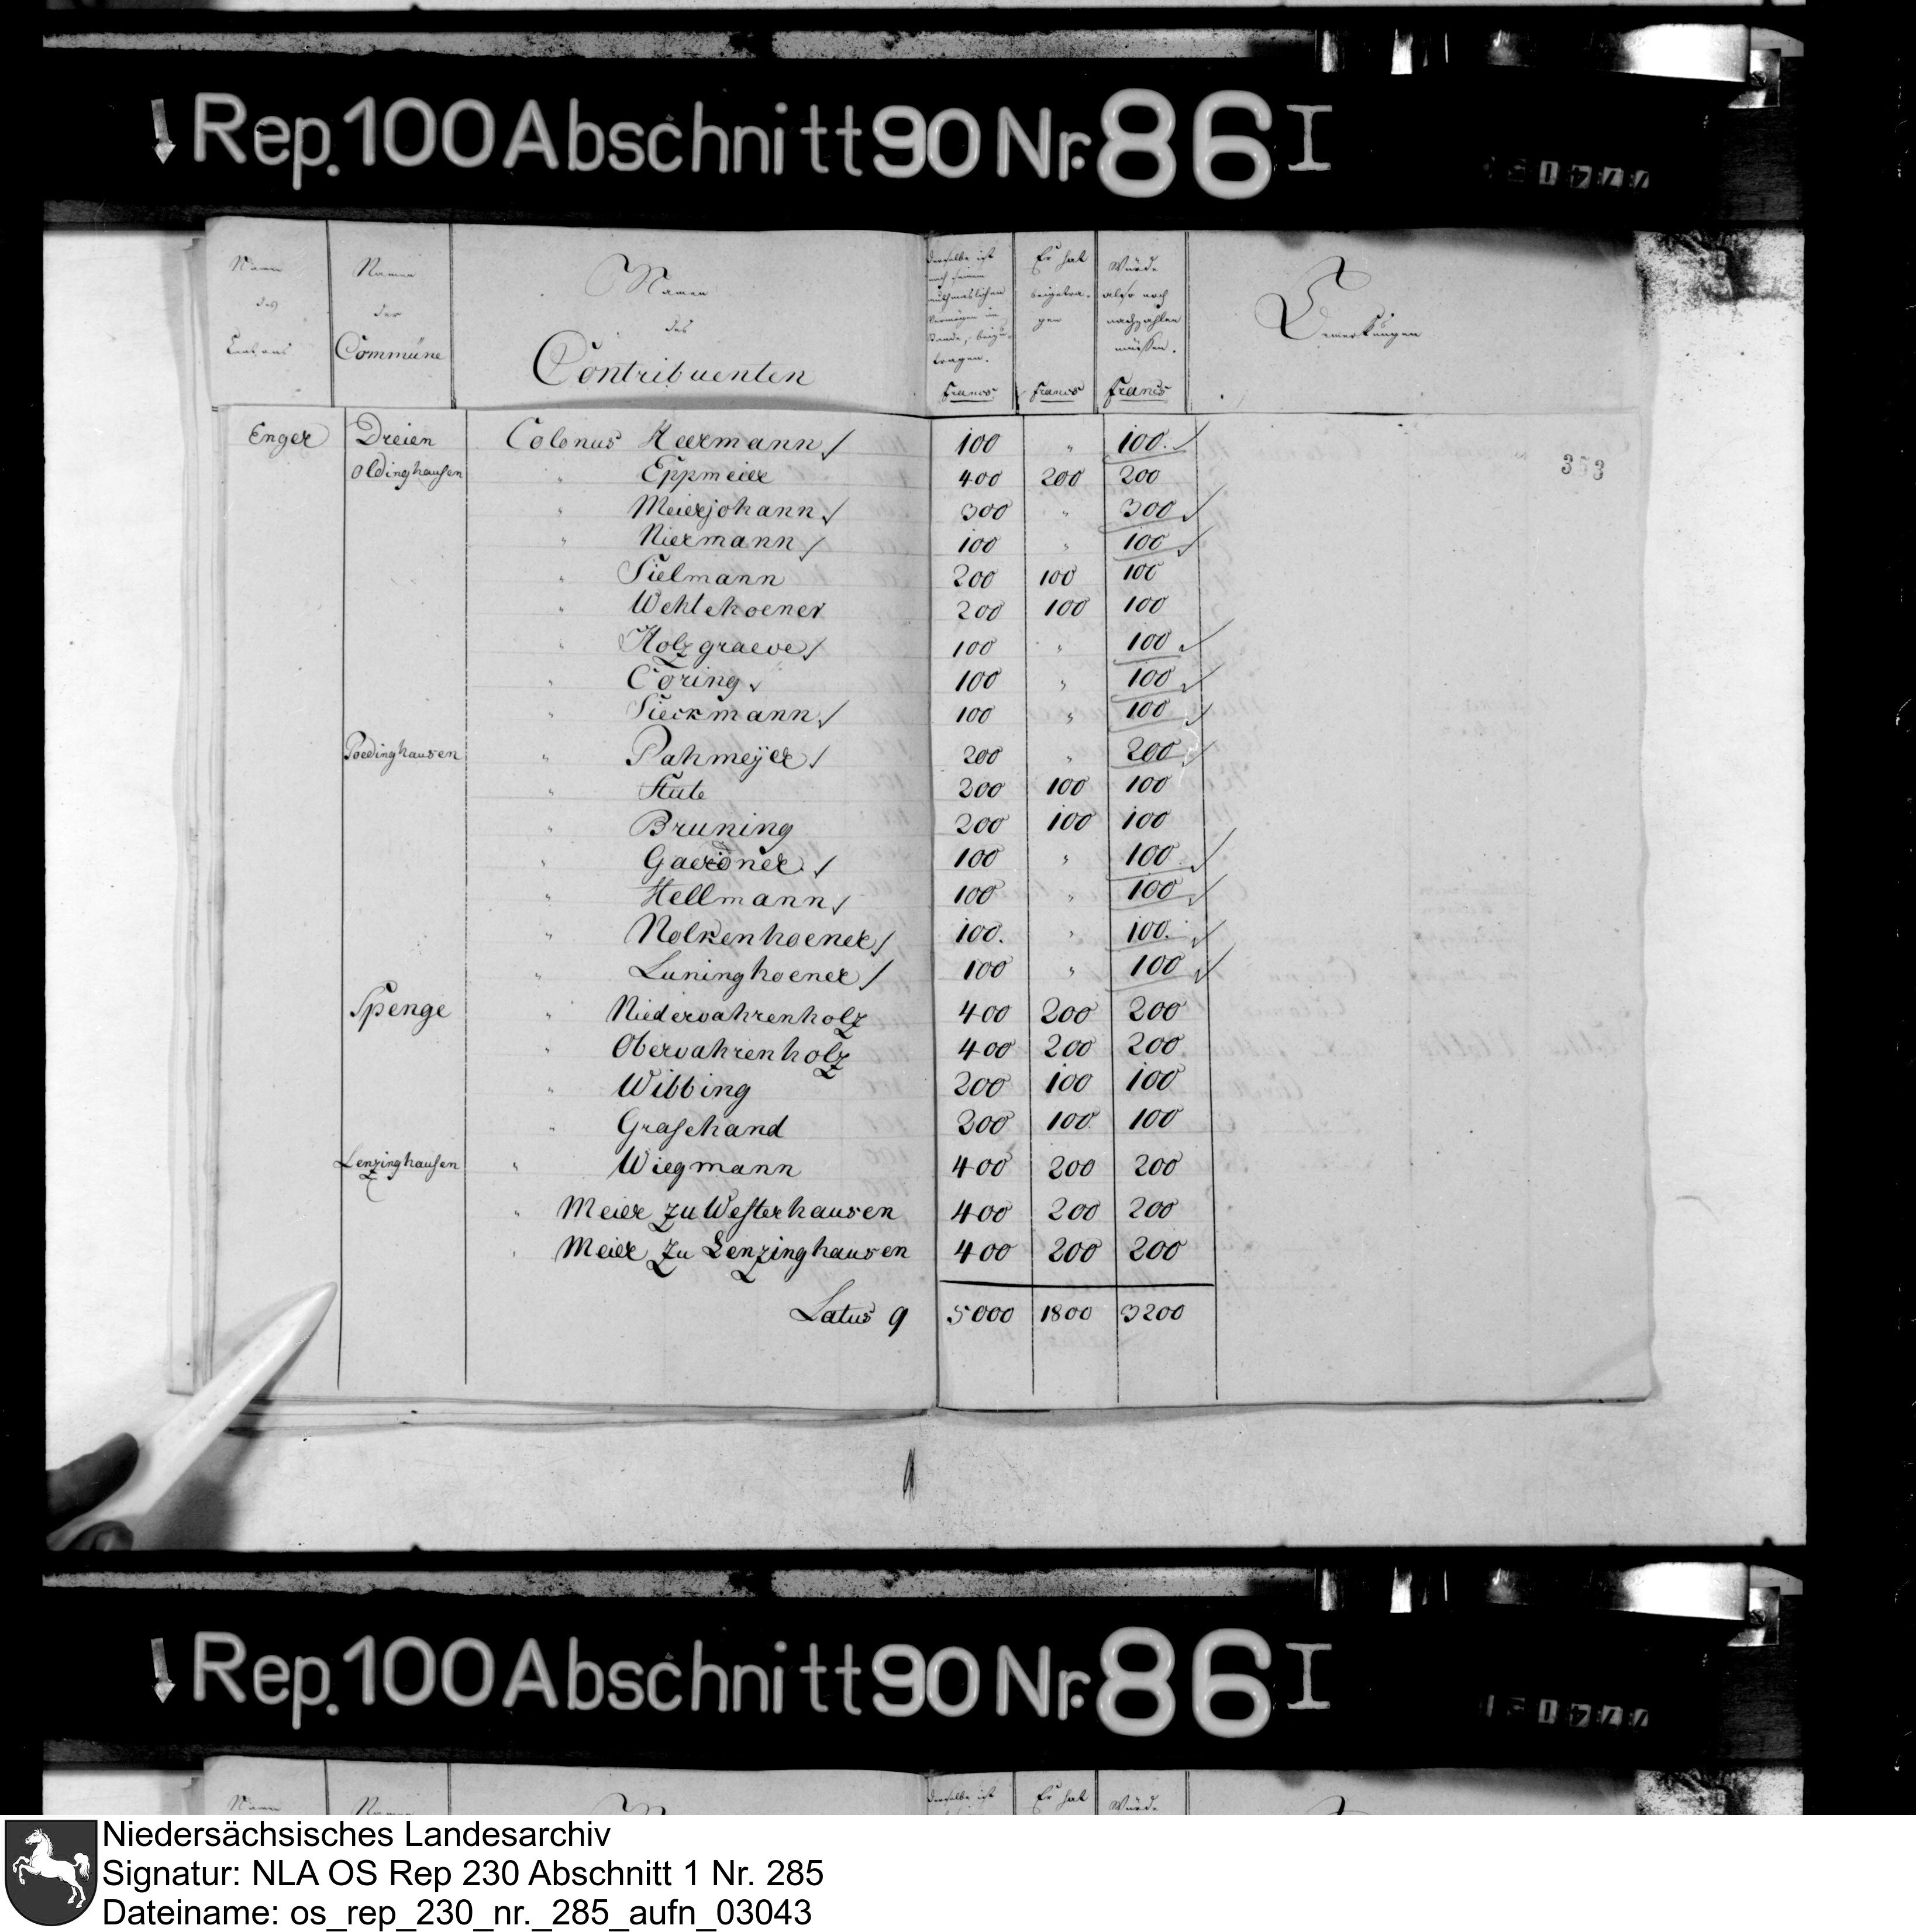 Rep. 100 Abschnitt 90 Nr. 86 I
Namen des Cantons
Namen der Commüne
Namen des Contribuenten
derselbe ist nach seinem muthmaslichen Vermögen im Stande, beizutragen. Francs
Er hat beigetragen Francs
Würde also noch nachzahlen müssen. Francs
Bemerkungen
353
Enger Dreien Colonus Heermann 100 " 100.
Oldinghausen " Eppmeier 400 200 200
" Meierjohann 300 " 300
" Niermann 100 " 100
" Sielmann 200 100 100
" Wehlehoener 200 100 100
" Holzgraeve 100 " 100
" Coring 100 " 100
" Sieckmann 100 " 100
Poedinghausen " Pahmeÿer 200 " 200
" Stute 200 100 100
" Bruning 200 100 100
" Gaerdner 100 " 100
" Hellmann 100 " 100
" Nolkenhoener 100. " 100.
" Luninghoener 100 " 100
Spenge " Niedervahrenholz 400 200 200
" Obervahrenholz 400 200 200
" Wibbing 200 100 100
" Grasehand 200 100 100
Lenzinghausen " Wiegmann 400 200 200
" Meier zu Westerhausen 400 200 200
" Meier zu Lenzinghausen 400 200 200
Latus 9 5000 1800 3200
Rep. 100 Abschnitt 90 Nr. 86 I
Er hat
Würde
Niedersächsisches Landesarchiv
Signatur: NLA OS Rep 230 Abschnitt 1 Nr. 285
Dateiname: os_rep_230_nr._285_aufn_03043